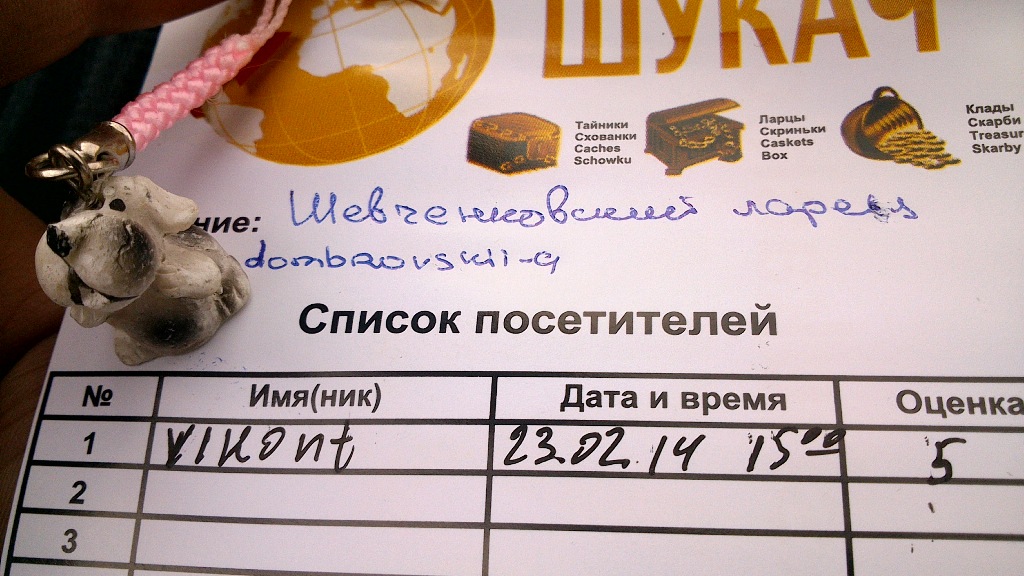 ШУКАЧ
Тайники
Схованки
Caches
Schowku
Ларцы
Скриньки
Caskets
Box
Клады
Скарби
Treasur
Skarby
ние: Шевченковский ларец
dombrovskii-a
Список посетителей
№ Имя(ник) Дата и время Оценка
1 VIKOnt 23.02.14 15⁰⁰ 5
2
3